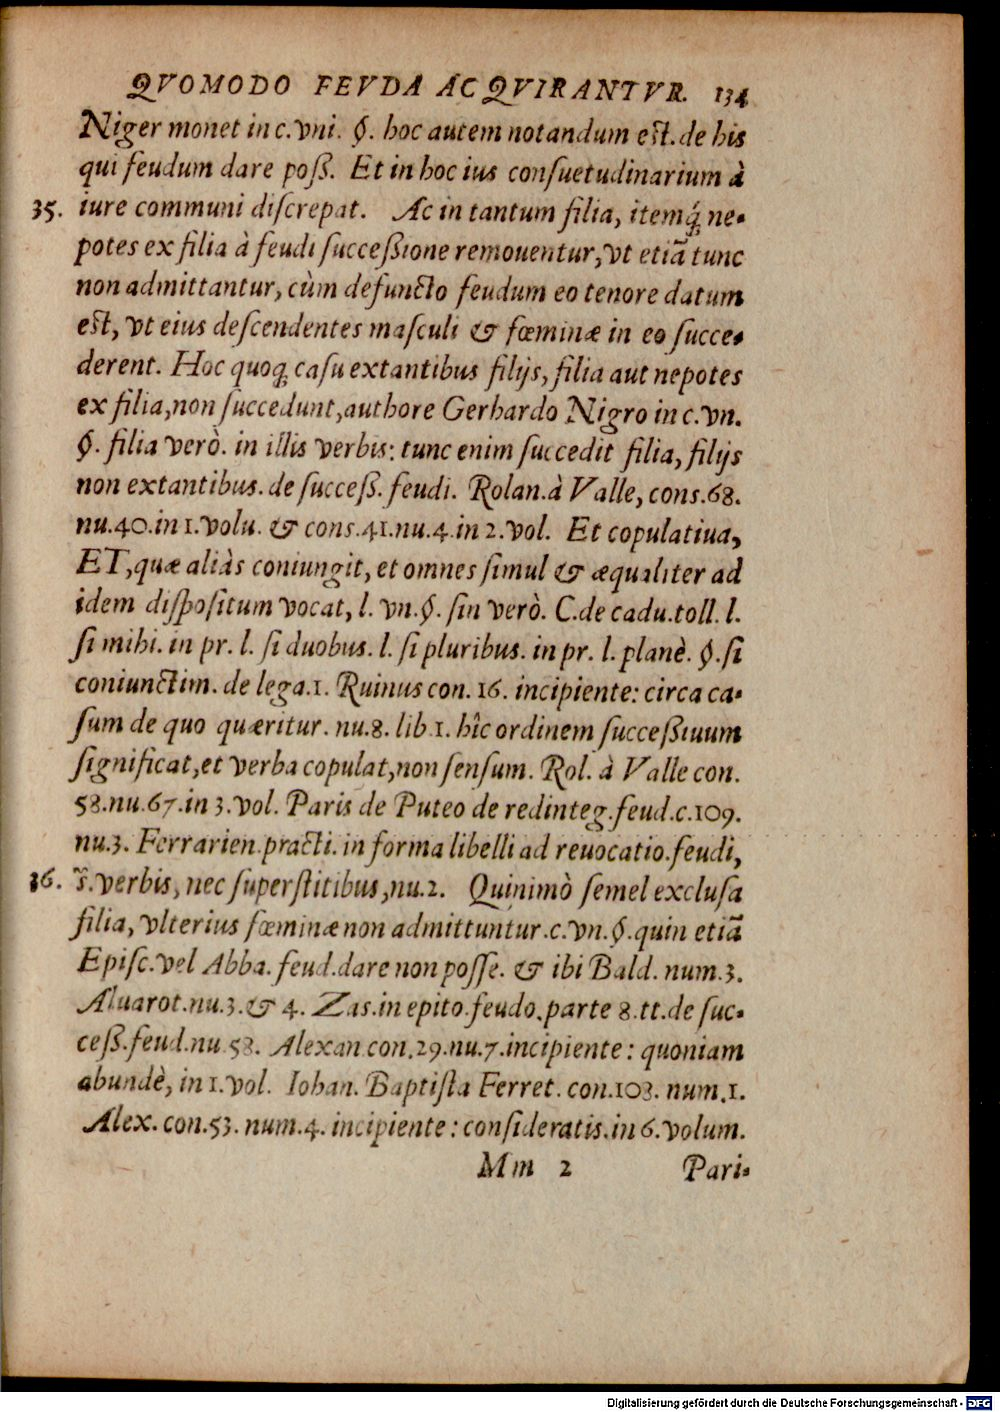 QVOMODO FEVDA ACQVIRANTVR. 134
Niger monet in c. vni. §. hoc autem notandum est. de his
qui feudum dare poß. Et in hoc ius consuetudinarium à
35. iure communi discrepat. Ac in tantum filia, itemq́ ne-
potes ex filia à feudi succeßione remouentur, vt etiā tunc
non admittantur, cùm defuncto feudum eo tenore datum
est, vt eius descendentes masculi & fœminæ in eo succe-
derent. Hoc quoq casu extantibus filijs, filia aut nepotes
ex filia, non succedunt, authore Gerhardo Nigro in c. vn.
§. filia verò. in illis verbis: tunc enim succedit filia, filijs
non extantibus. de succeß. feudi. Rolan. à Valle, cons. 68.
nu. 40. in 1. volu. & cons. 41. nu. 4. in 2. vol. Et copulatiua,
ET, quæ aliàs coniungit, et omnes simul & æqualiter ad
idem dispositum vocat, l. vn. §. sin verò. C. de cadu. toll. l.
si mihi. in pr. l. si duobus. l. si pluribus. in pr. l. planè. §. si
coniunctim. de lega. 1. Ruinus con. 16. incipiente: circa ca-
sum de quo quæritur. nu. 8. lib. 1. hîc ordinem succeßiuum
significat, et verba copulat, non sensum. Rol. à Valle con.
58. nu. 67. in 3. vol. Paris de Puteo de redinteg. feud. c. 109.
nu. 3. Ferrarien. practi. in forma libelli ad reuocatio. feudi,
36. ℣. verbis, nec superstitibus, nu. 2. Quinimò semel exclusa
filia, vlterius fœminæ non admittuntur. c. vn. §. quin etiā
Episc. vel Abba. feud. dare non posse. & ibi Bald. num. 3.
Aluarot. nu. 3. & 4. Zas. in epito. feudo. parte 8. tt. de suc-
ceß. feud. nu. 58. Alexan. con. 29. nu. 7. incipiente: quoniam
abundè, in 1. vol. Iohan. Baptista Ferret. con. 103. num. 1.
Alex. con. 53. num. 4. incipiente: consideratis. in 6. volum.
Mm 2 Pari-
Digitalisierung gefördert durch die Deutsche Forschungsgemeinschaft - DFG